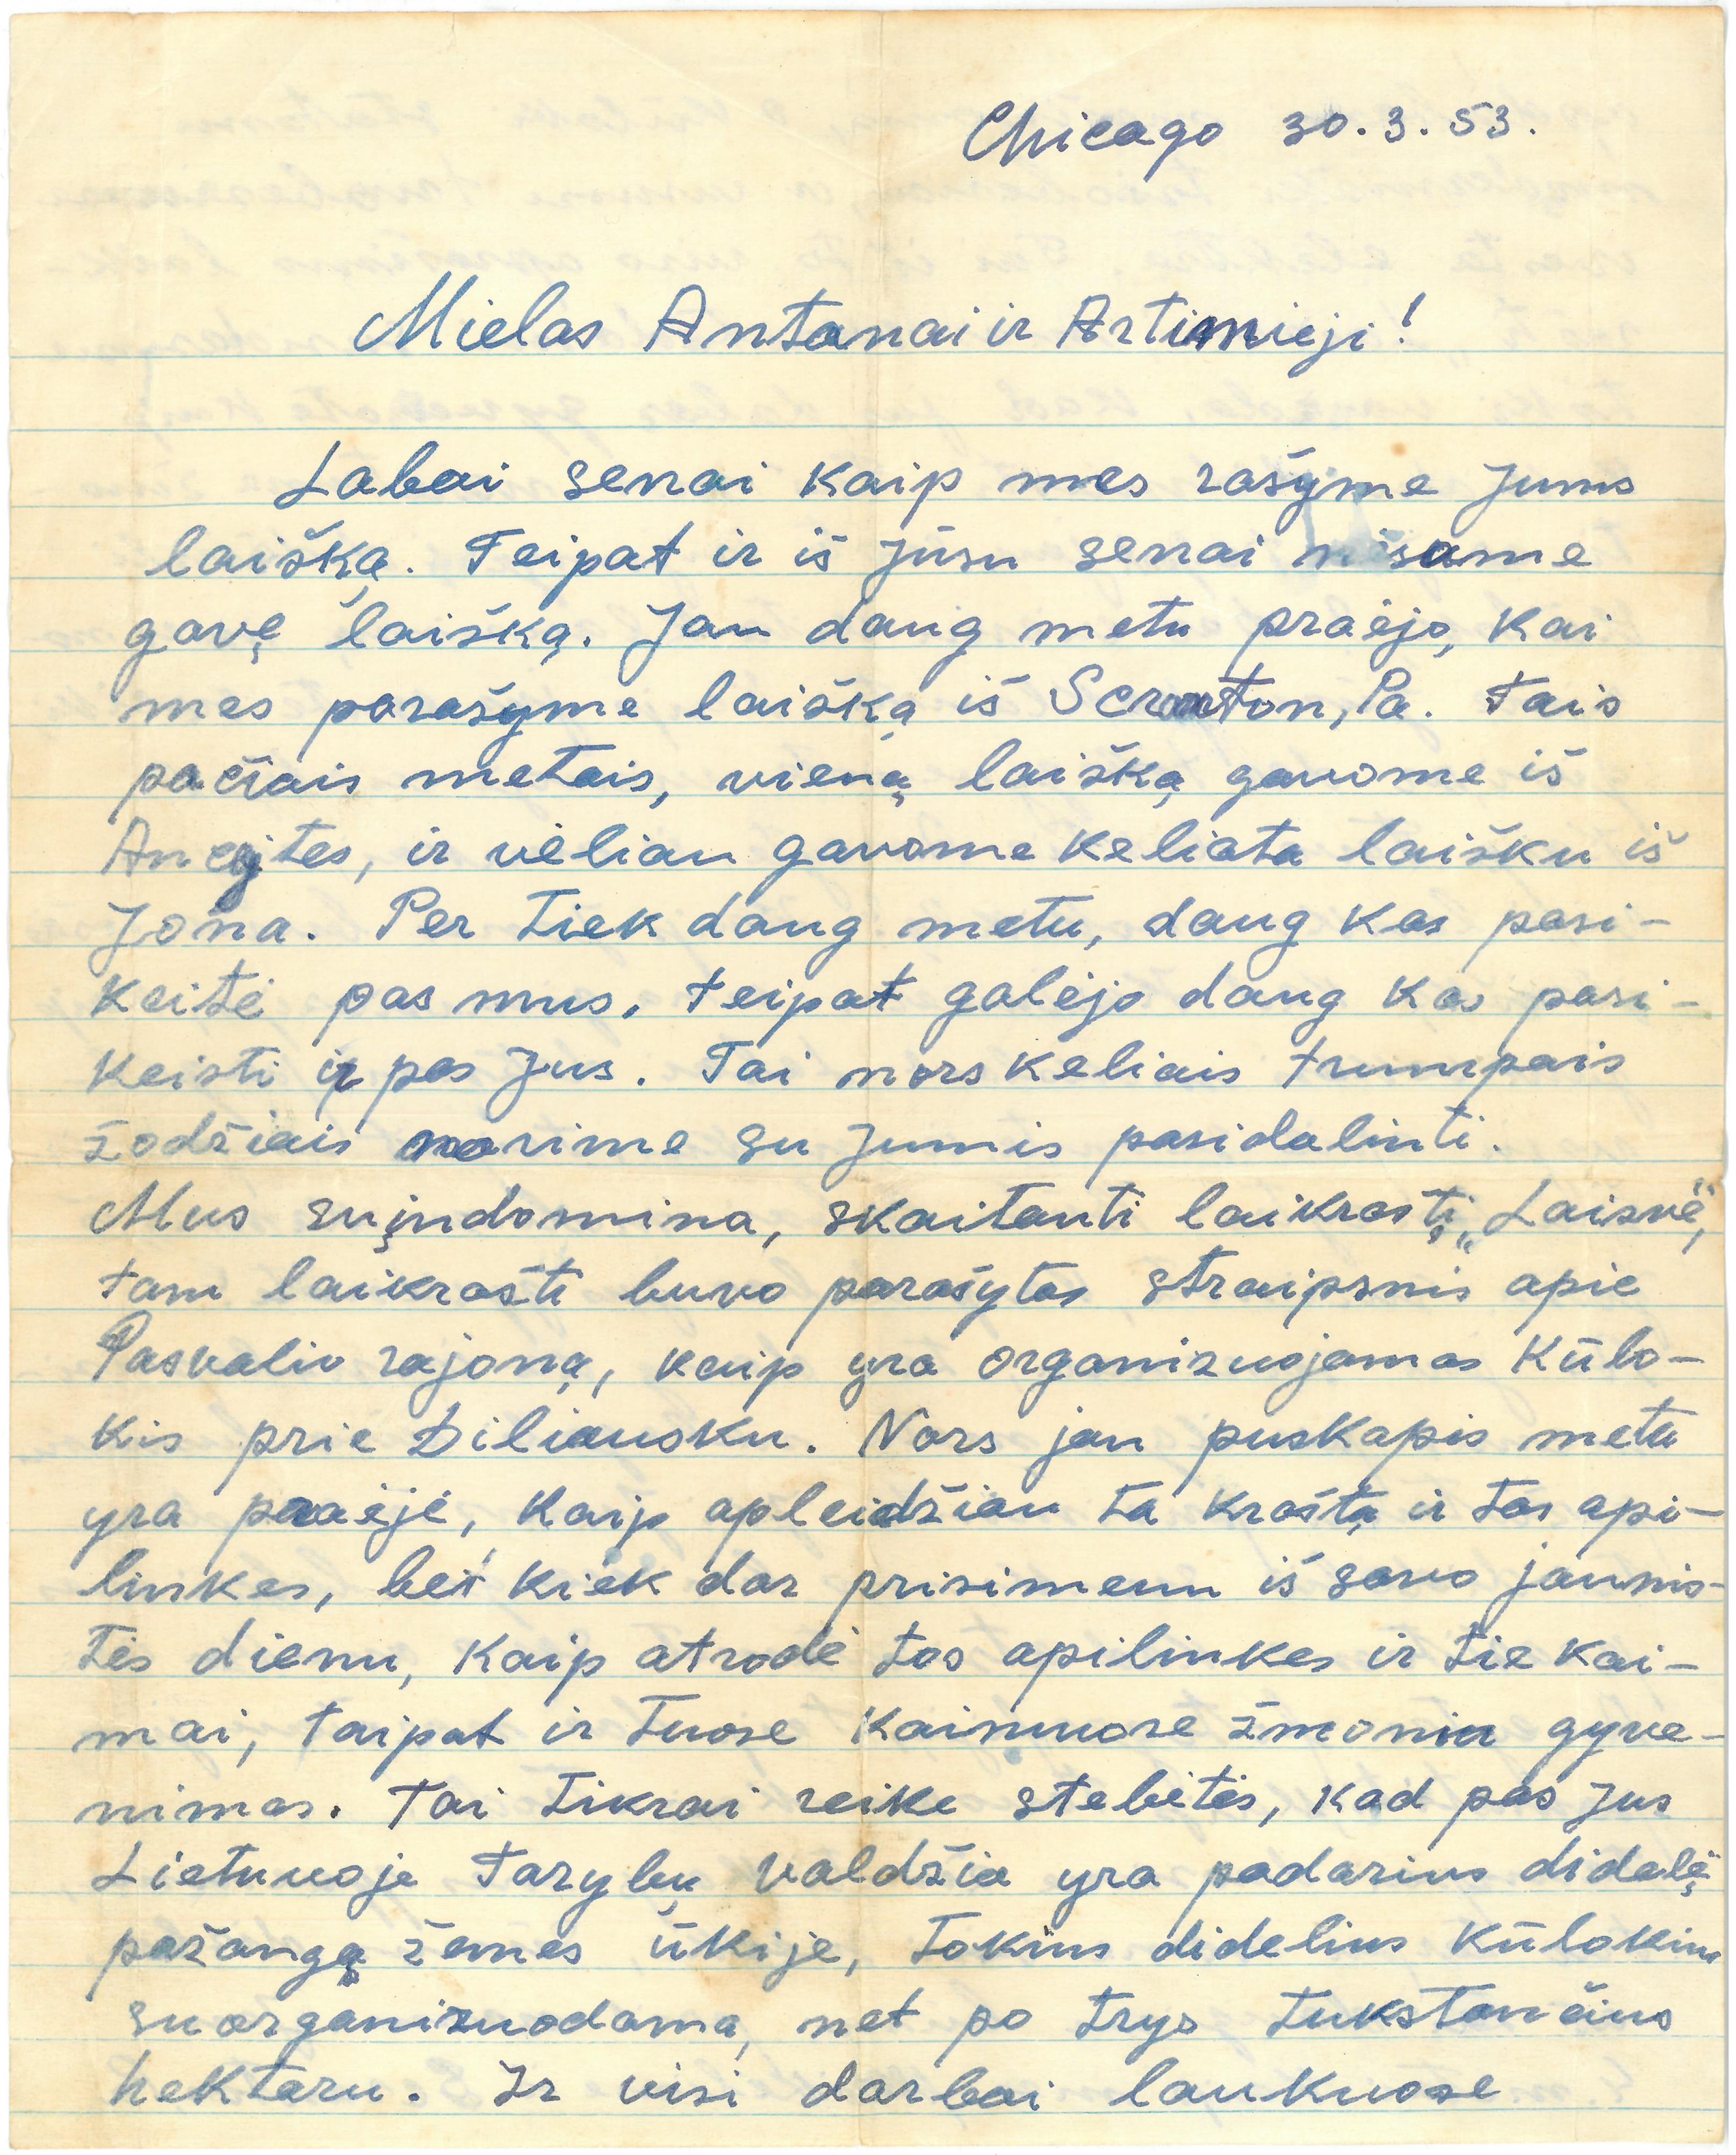 Chicago 30.3.53.
Mielas Antanai ir Artimieji!
Labai senai kaip mes rašyme Jums
laišką. Teipat ir iš Jūsu senai nėsame
gavę laišką. Jau daug metu praėjo, kai
mes parašyme laišką iš Scranton, Pa. Tais
pačiais metais, vieną laišką gavome iš
ir vėliau gavome keliata laišku iš
Jona. Per tiek daug metu, daug kas pasi-
keitė pas mus, teipat galėjo daug kas pasi-
keisti ir pas Jus. Tai nors keliais trumpais
žodžiais norime su Jumis pasidalinti.
Mus suįndomina, skaitanti laikrastį „Laisvė",
tam laikrašti buvo parašytas straipsnis apie
Pasvalio rajoną, kaip yra organizuojamas Kūlo-
kis prie Diliausku. Nors jau puskapis metu
yra praėję, kaip apleidžiau ta kraštą ir tas api-
linkes, bet kiek dar prisimenu iš savo jaunis-
tės dienu, kaip atrodė tos apilinkes ir tie kai-
mai, taipat ir tuose kaimuose žmoniu gyve-
nimas. Tai tikrai reike stebėtės, kad pas Jus
Lietuvoje Tarybų valdžia yra padarius didelę
pažangą žemes ūkije, tokius didelius kūlokius
suorganizuodama, net po trys tukstančius
hektaru. Ir visi darbai laukuose